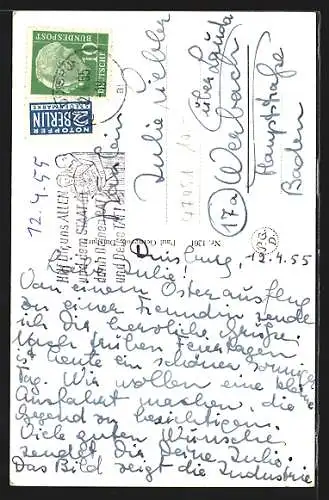 10
DEUTSCHE
BUNDESPOST
NOTOPFER
2 BERLIN
STEUERMARKE
12.4.55
Hilf
uns ALLEN
und
und Deine
Julie Liebler
47051
(17a) Werbach
über
Hauptstraße
Baden
Nr. 1201
Paul
Duisburg
Duisburg, 12.4.55
Julie!
Von einem Osterausflug
zu einer Freundin sende
ich Dir herzliche Grüße.
Nach trüben Feiertagen
ist heute ein schöner sonniger
Tag. Wir wollen eine kleine
Ausfahrt machen, die
Gegend zu besichtigen.
Viele guten Wünsche
sendet Dir Deine Julie.
Das Bild zeigt die Industrie